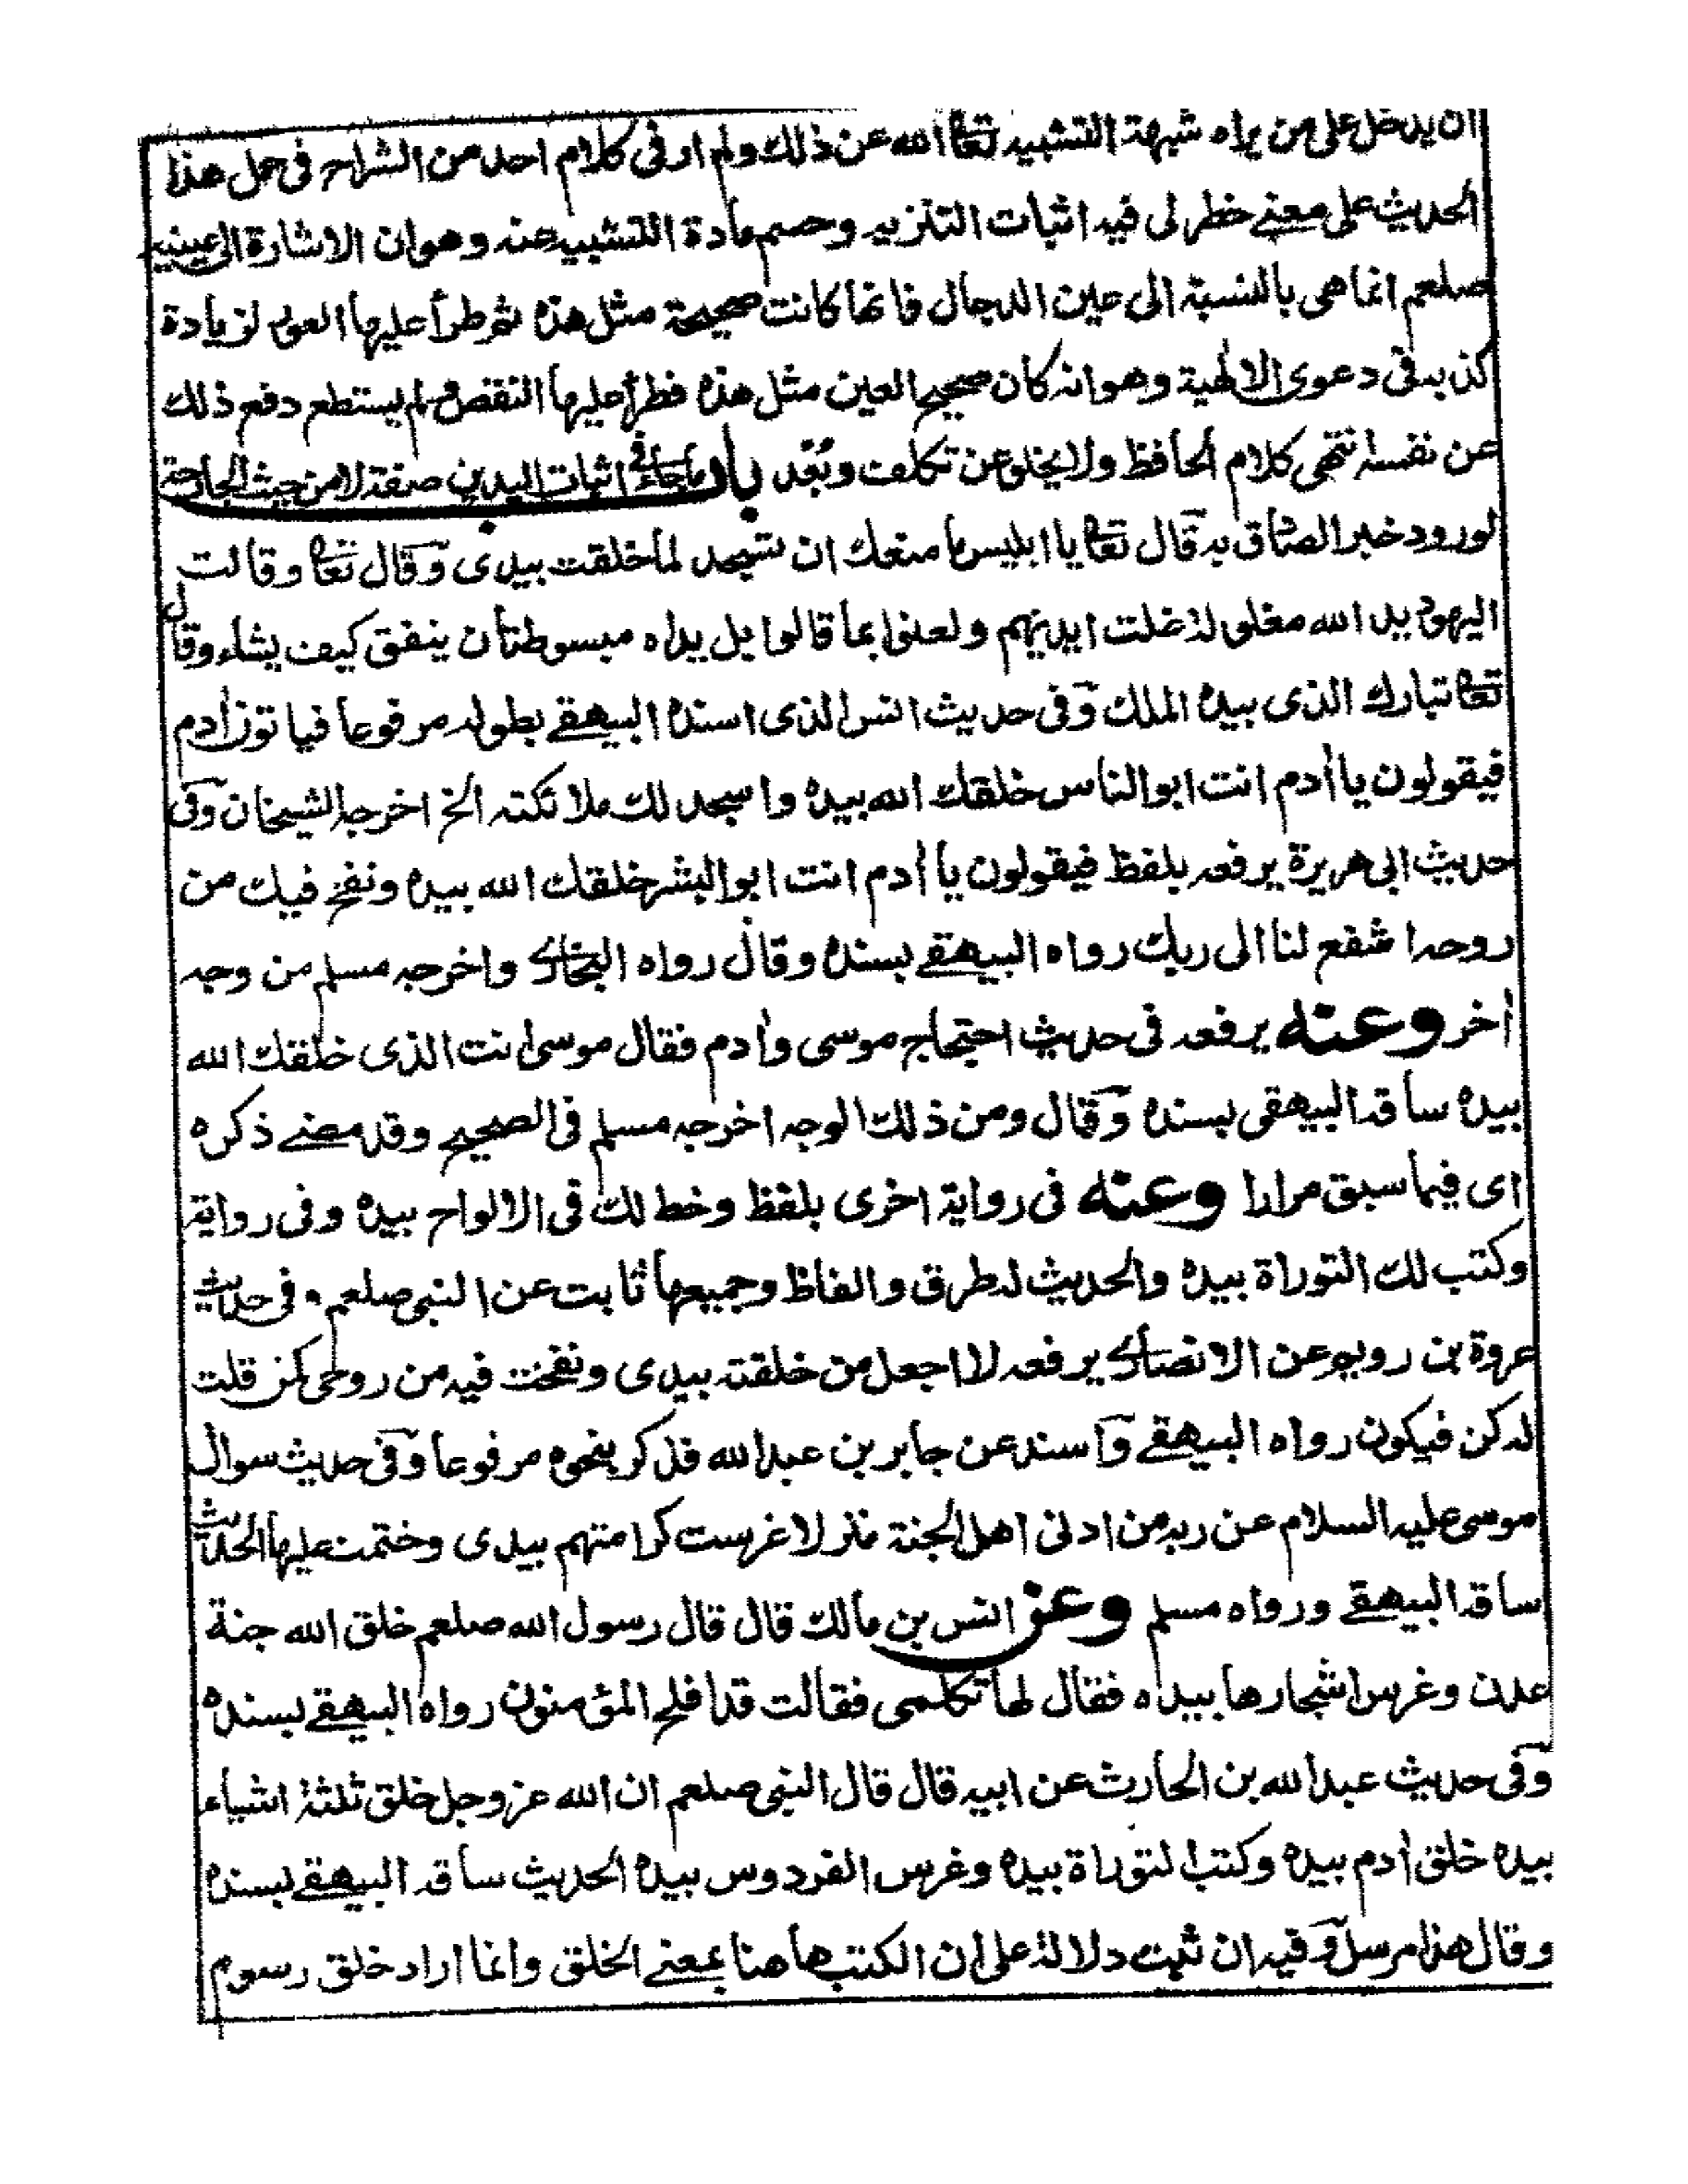 ان يدخل على من يراه شبهة التشبيه تعا الله عن ذلك ولم ار فى كلام احد من الشراح فى حمل هذا
الحديث على معنى خطر لى فيه اثبات التنزيه وحسم مادة التشبيه عنه وهو ان الاشارة الى عينيه
صلعم انما هى بالنسبة الى عين الدجال فانها كانت صحيحة مثل هذه ثم طرأ عليها العور لزيادة
كذبه فى دعوى الالهية وهو انه كان صحيح العين مثل هذه فطرأ عليها النقص ولم يستطع دفع ذلك
عن نفسه انتهى كلام الحافظ ولا يخلو عن تكلف وبُعد باب ماجاء فى اثبات اليدين صفة لا من حيث الجارحة
لورود خبر الصادق به قال تعا يا ابليس ما منعك ان تسجد لما خلقت بيدى وقال تعا وقالت
اليهود يد الله مغلولة غلت ايديهم ولعنوا بما قالوا بل يداه مبسوطتان ينفق كيف يشاء وقال
تعا تبارك الذى بيده الملك وفى حديث انس الذى اسنده البيهقے بطوله مرفوعا فياتون آدم
فيقولون يا آدم انت ابو الناس خلقك الله بيده واسجد لك ملائكته الخ اخرجه الشيخان وفى
حديث ابى هريرة يرفعه بلفظ فيقولون يا آدم انت ابو البشر خلقك الله بيده ونفخ فيك من
روحه اشفع لنا الى ربك رواه البيهقے بسنده وقال رواه البخارى واخرجه مسلم من وجه
آخر وعنه يرفعه فى حديث احتجاج موسى وآدم فقال موسى انت الذى خلقك الله
بيده ساقه البيهقى بسنده وقال ومن ذلك الوجه اخرجه مسلم فى الصحيح وقد مضے ذكره
اى فيما سبق مرارا وعنه فى رواية اخرى بلفظ وخط لك فى الالواح بيده وفى رواية
وكتب لك التوراة بيده والحديث له طرق والفاظ وجميعها ثابت عن النبى صلعم وفى حديث
عروة بن رويم عن الانصارى يرفعه لا اجعل من خلقته بيدى ونفخت فيه من روحى كمن قلت
له كن فيكون رواه البيهقے واسند عن جابر بن عبد الله فذكر بنحوه مرفوعا وفى حديث سوال
موسى عليه السلام عن ربه من ادنى اهل الجنة منزلا غرست كرامتهم بيدى وختمت عليها الحديث
ساقه البيهقے ورواه مسلم وعن انس بن مالك قال قال رسول الله صلعم خلق الله جنة
عدن وغرس اشجارها بيداه فقال لها تكلمى فقالت قد افلح المؤمنون رواه البيهقے بسنده
وفى حديث عبد الله بن الحارث عن ابيه قال قال النبى صلعم ان الله عز وجل خلق ثلثة اشياء
بيده خلق آدم بيده وكتب التوراة بيده وغرس الفردوس بيده الحديث ساقه البيهقے بسنده
وقال هذا مرسل وفيه ان ثبت دلالة على ان الكتب هاهنا بمعنے الخلق وانما اراد خلق رسوم